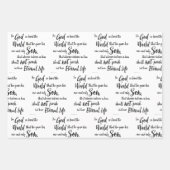 God so loved the
World that He gave his
one and only Son,
that whoever believes in him
shall not perish
but have Eternal life
God so loved the
World that He gave his
one and only Son,
that whoever believes in him
shall not perish
but have Eternal life
God so loved the
World that He gave his
one and only Son,
that whoever believes in him
shall not perish
but have Eternal life
God so loved the
World that He gave his
one and only Son,
that whoever believes in him
shall not perish
but have Eternal life
God so loved the
World that He gave his
one and only Son,
that whoever believes in him
shall not perish
but have Eternal life
God so loved the
World that He gave his
one and only Son,
that whoever believes in him
shall not perish
but have Eternal life